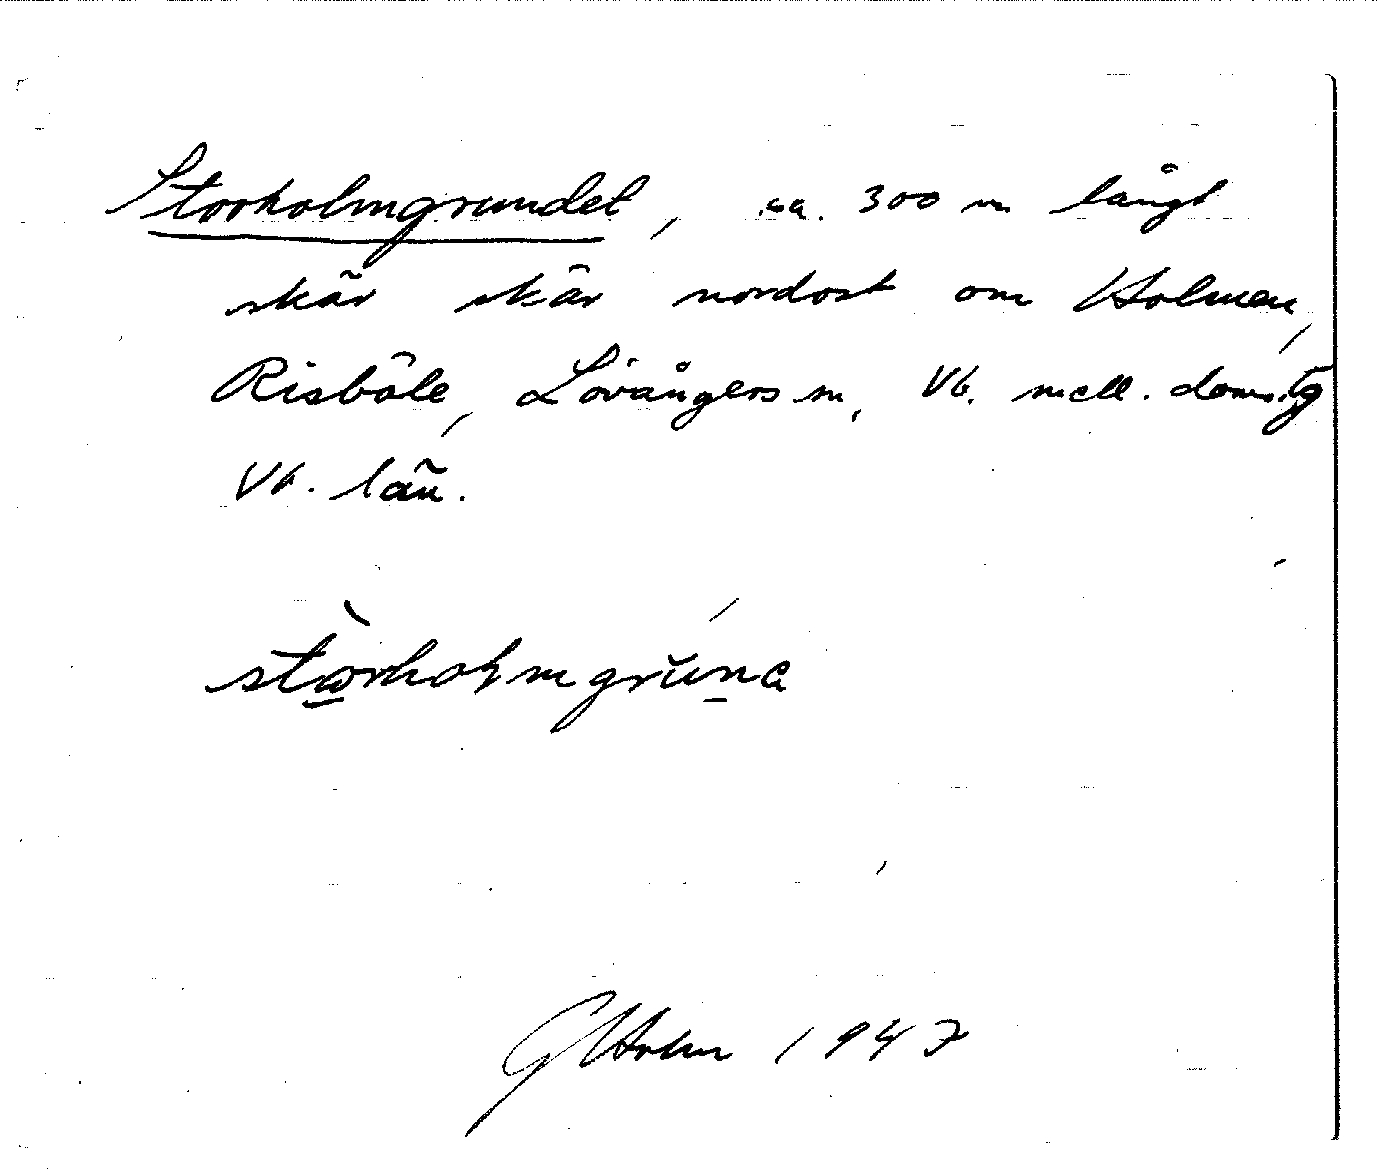 Storholmgrundet, ca. 300 m långt
skär skär nordost om Holmen,
Risböle, Lövångers sn, Vb. mell. doms.tg
Vb. län.
G Holm 1947